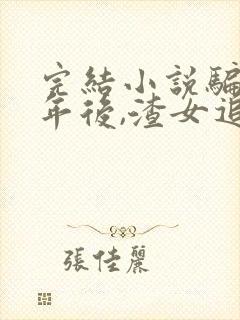 完結小說騙
年後,渣女追
張佳麗